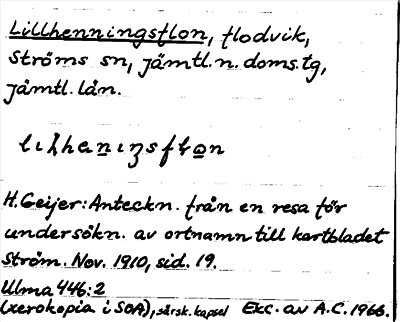 Lillhenningsflon, flodvik,
Ströms sn, jämtl.n.doms.tg,
jämtl. län.
H. Geijer: Anteckn. från en resa för
undersökn. av ortnamn till kartbladet
Ström. Nov. 1910, sid. 19.
Ulma 446:2
(xerokopia i SOA), särsk. kapsel Exc. av A.C. 1966.